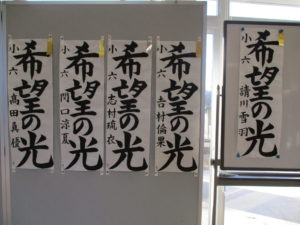 希望の光
小六 請川雪羽
希望の光
小六 吉村倫果
希望の光
小六 志村琉衣
希望の光
小六 関口涼夏
希望の光
小六 高田真優